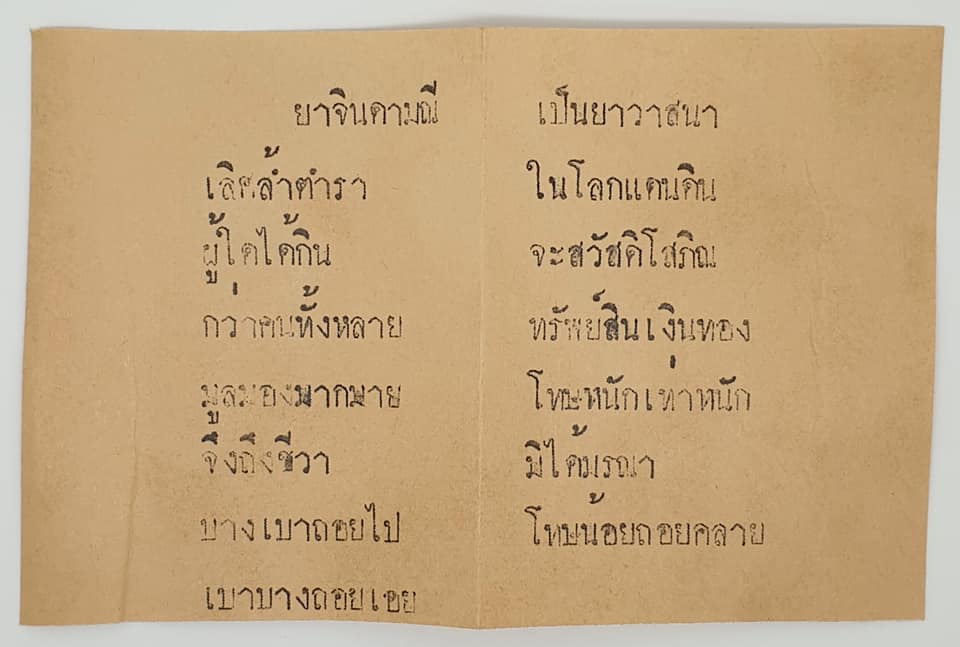 ยาจินดามณี เป็นยาวาสนา
เลิศล้ำตำรา ในโลกแดนดิน
ผู้ใดได้กิน จะสวัสดิโสภิณ
กว่าคนทั้งหลาย ทรัพย์สินเงินทอง
มูลมองมากมาย โทษหนักเท่าหนัก
จึงถึงชีวา มิได้มรณา
บางเบาถอยไป โทษน้อยถอยคลาย
เบาบางถอยเอย